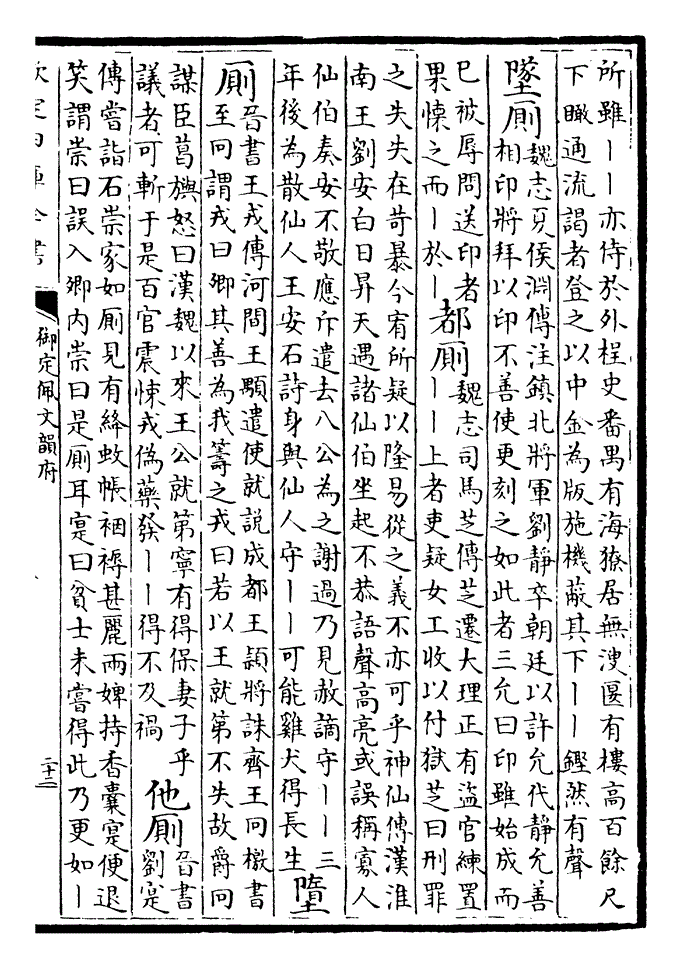 所雖丨丨亦侍於外桯史番禺有海獠居無溲匽有樓高百餘尺
下瞰通流謁者登之以中金為版施機蔽其下丨丨鏗然有聲
墜厠
魏志夏侯淵傳注鎮北將軍劉靜卒朝廷以許允代靜允善
相印將拜以印不善使更刻之如此者三允曰印雖始成而
已被辱問送印者
果懷之而丨於丨
都厠
魏志司馬芝傳芝遷大理正有盜官練置
丨丨上者吏疑女工收以付獄芝曰刑罪
之失失在苛暴今宥所疑以隆易從之義不亦可乎神仙傳漢淮
南王劉安白日昇天遇諸仙伯坐起不恭語聲高亮或誤稱寡人
仙伯奏安不敬應斥遣去八公為之謝過乃見赦謫守丨丨三
年後為散仙人王安石詩身與仙人守丨丨可能雞犬得長生
墮
厠
晉書王戎傳河間王顒遣使就說成都王穎將誅齊王冏檄書
至冏謂戎曰卿其善為我籌之戎曰若以王就第不失故爵冏
謀臣葛旟怒曰漢魏以來王公就第寧有得保妻子乎
議者可斬于是百官震悚戎偽藥發丨丨得不及禍
他厠
晉書
劉寔
傳嘗詣石崇家如厠見有絳蚊帳裀褥甚麗兩婢持香囊寔便退
笑謂崇曰誤入卿內崇曰是厠耳寔曰貧士未嘗得此乃更如丨
欽定四庫全書
御定佩文韻府
二十二